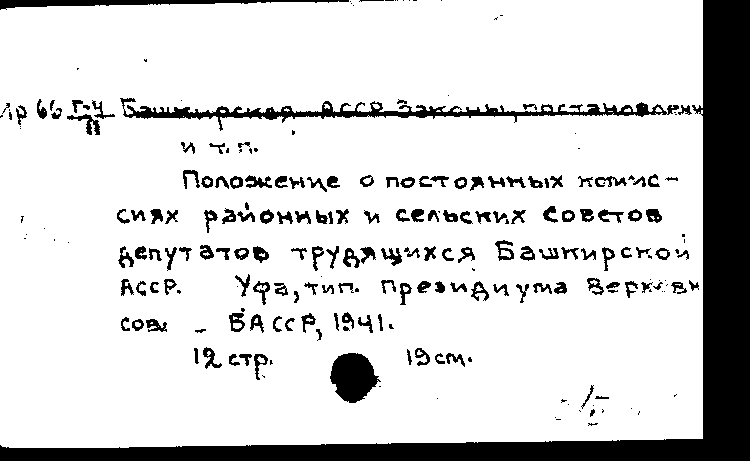 Ир 66 Г-4/II Башкирская АССР. Законы, постановлени
и т.п.
Положение о постоянных комис-
сиях районных и сельских Советов
депутатов трудящихся Башкирской
АССР. Уфа, тип. Президиума Верховн
сов. - БАССР, 1941.
12 стр. 19 см.